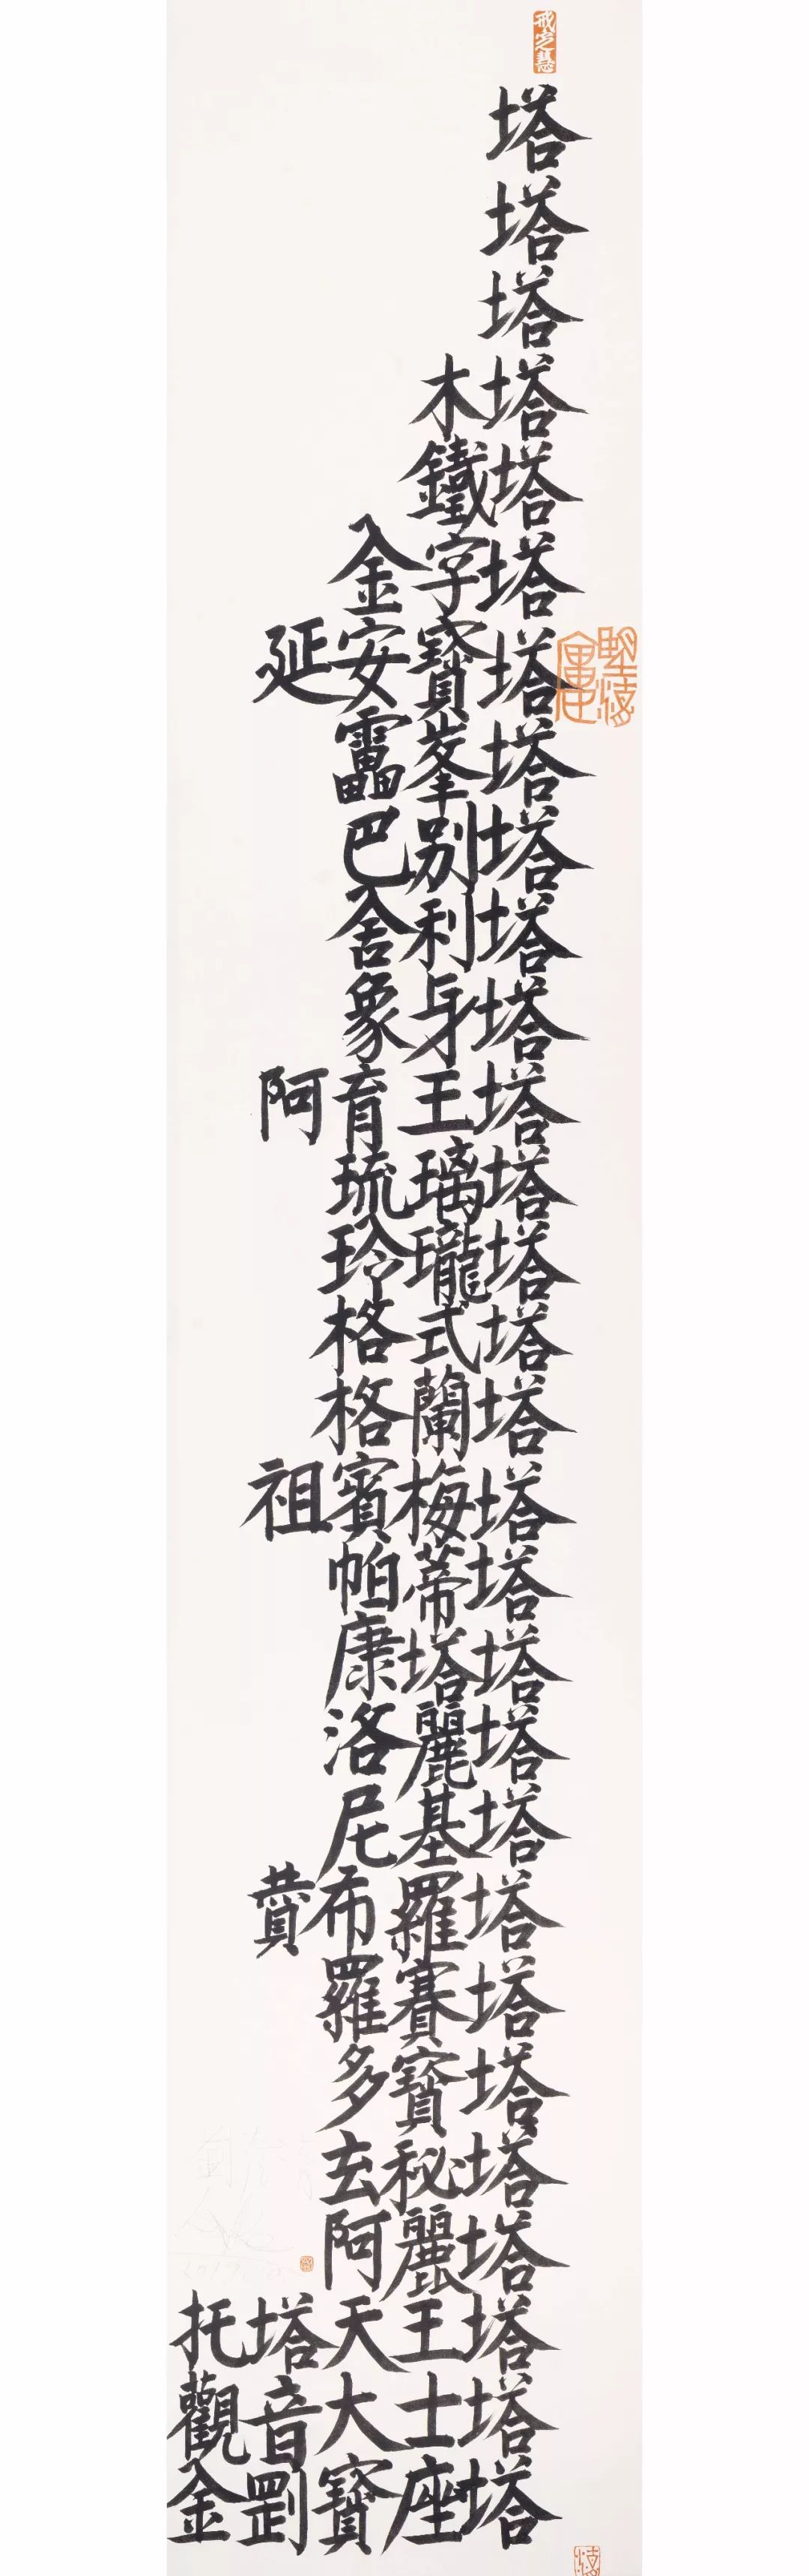 戒定慧
塔
塔
塔
木塔
鐵塔
金字塔
延安寶塔
靁峯塔
巴別塔
舍利塔
象身塔
阿育王塔
琉璃塔
玲瓏塔
格式塔
格蘭塔
祖賓梅塔
帕蒂塔
康塔塔
洛麗塔
尼基塔
賁布羅塔
羅賽塔
多寶塔
玄秘塔
阿麗塔
托塔天王塔
觀音大士塔
金剛寶座塔